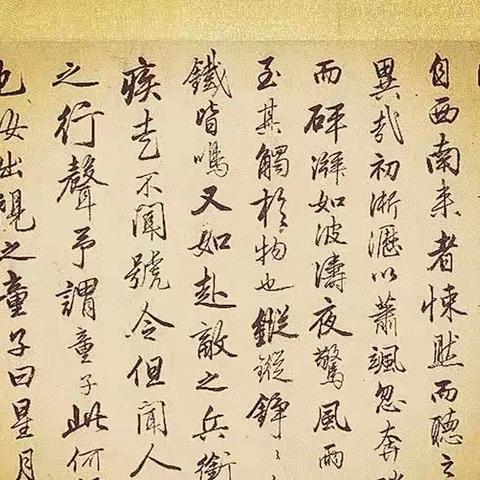 自西南来者悚然而聽之
異哉初淅瀝以蕭颯忽奔
而砰湃如波濤夜驚風雨
至其觸於物也鏦鏦錚〻
鐵皆鳴又如赴敵之兵銜
疾走不聞號令但聞人
之行聲予謂童子此何
也汝出視之童子曰星月